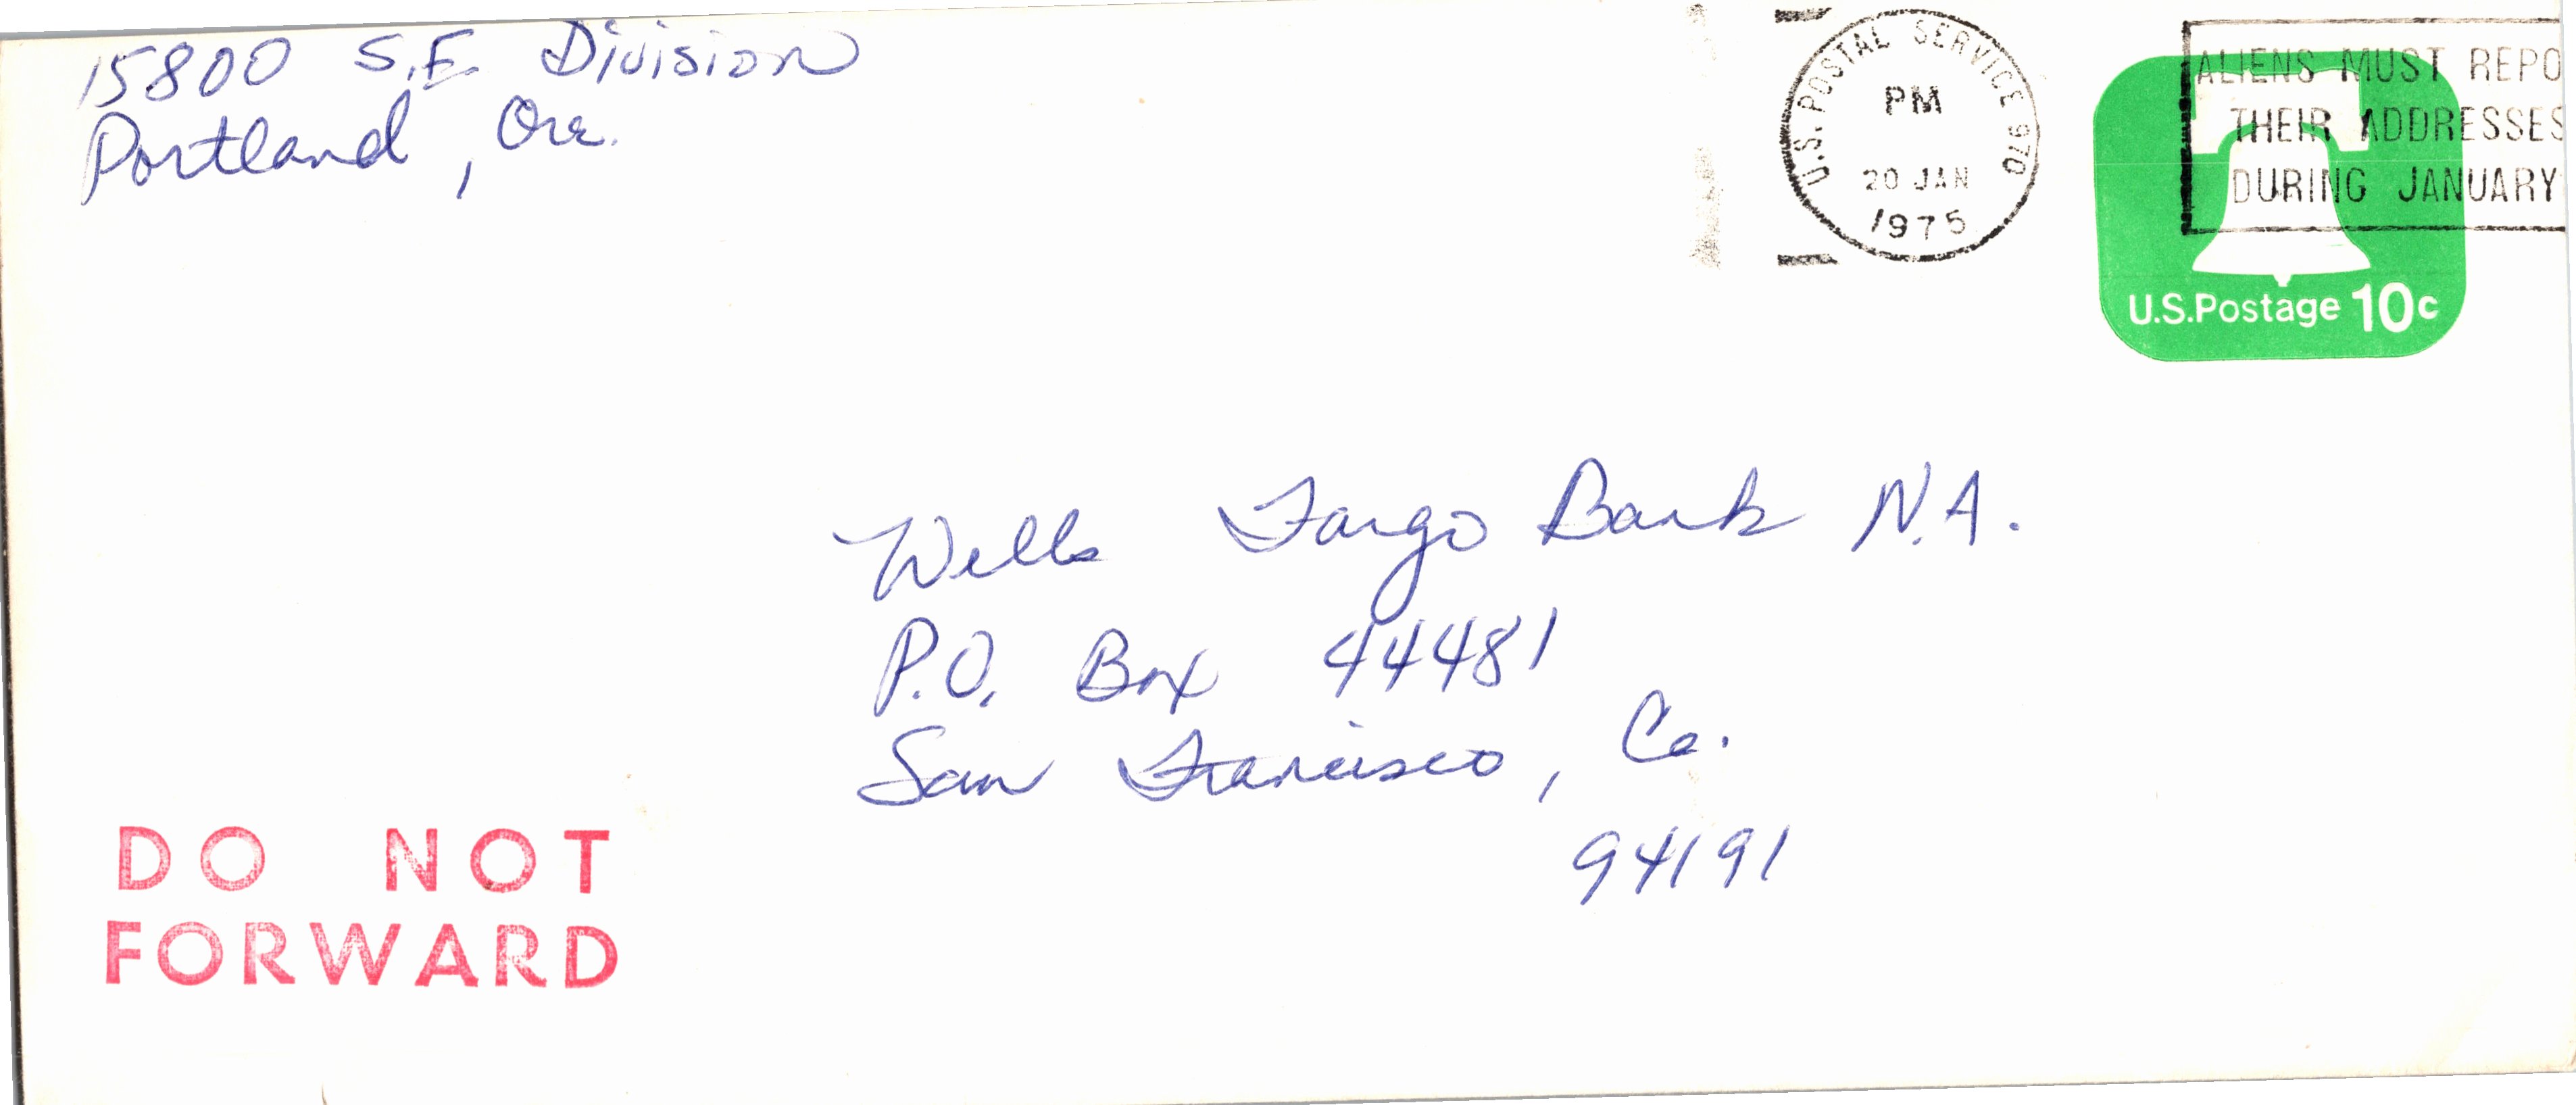 15800 S.E. Division
Portland, Ore.
U.S. POSTAL SERVICE 970
PM
20 JAN
1975
ALIENS MUST REPO
THEIR ADDRESSES
DURING JANUARY
U.S.Postage 10c
Wells Fargo Bank N.A.
P.O. Box 44481
San Francisco, Ca.
94191
DO NOT
FORWARD